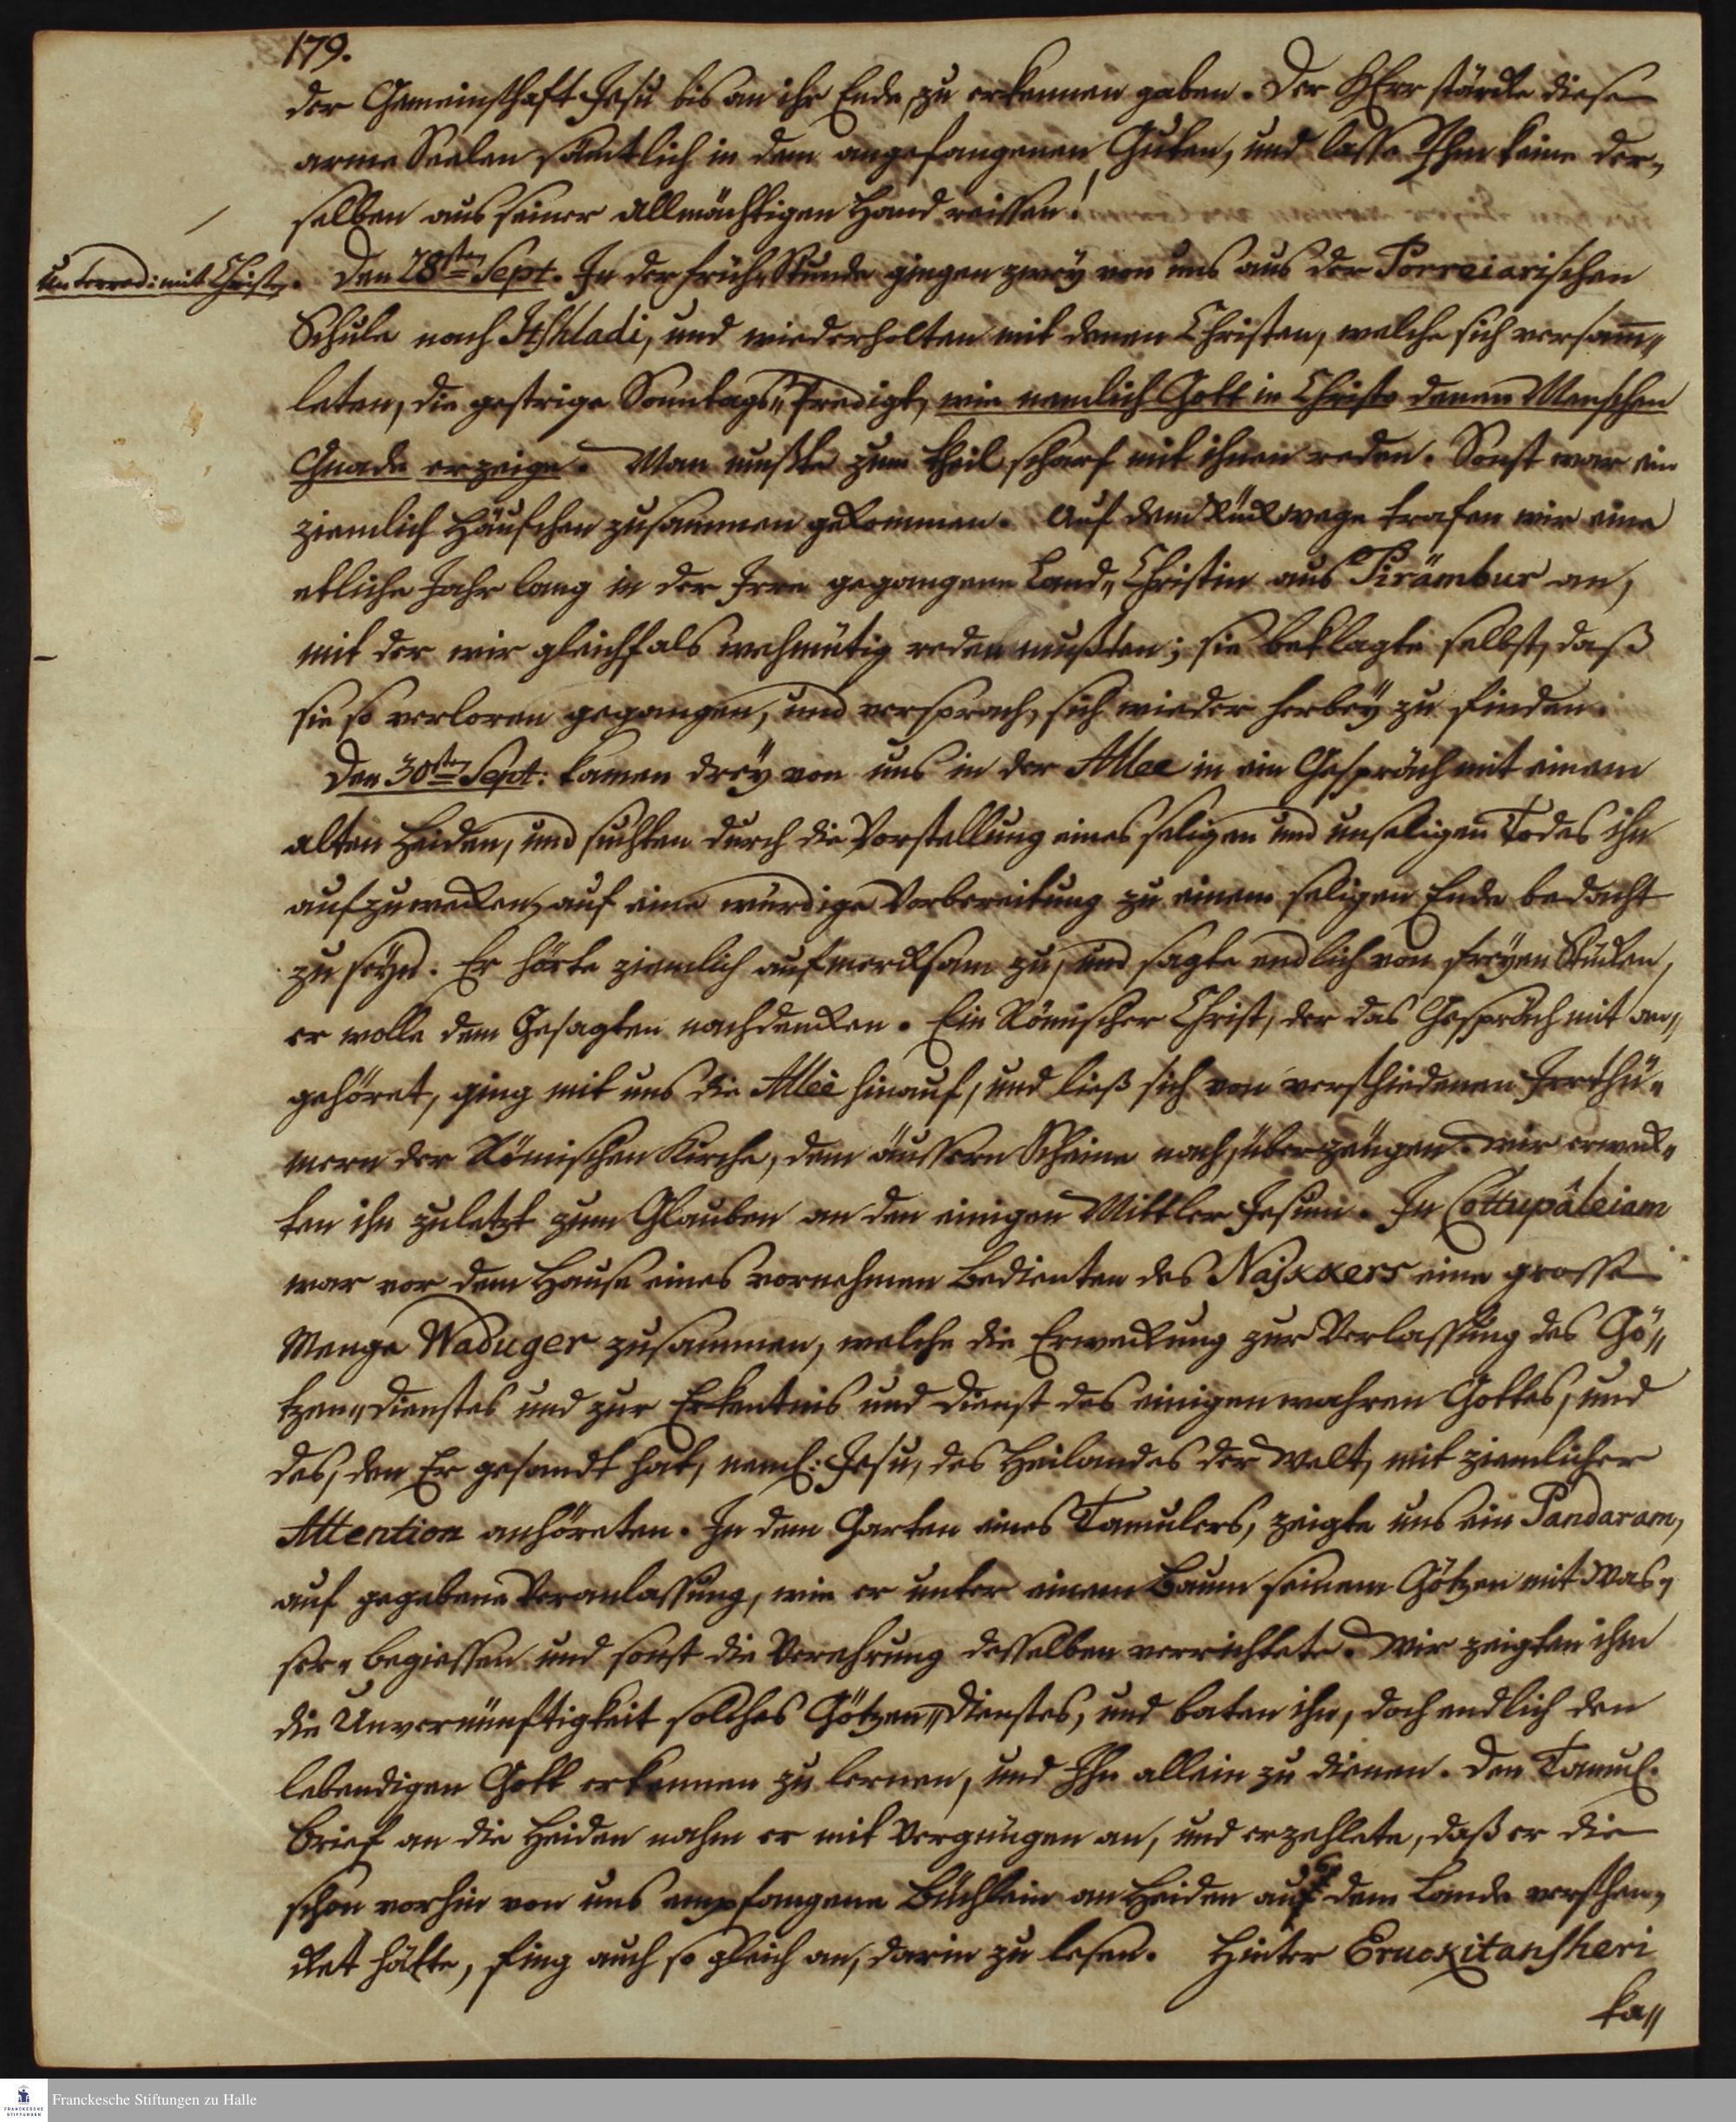 179.
der Gemeinschaft Jesu bis an ihr Ende, zu erkennen gaben. Der HErr stärcke diese
arme Seelen sämtlich in dem angefangenen Guten, und lasse Ihm keine der„
selben aus seiner allmächtigen Hand reissen!
Unterred: mit Christ.
Den 28sten Sept. In der früh„Stunde gingen zwey von uns aus der Porreiarischen
Schule nach Itshladi, und wiederholten mit denen Christen, welche sich versam̅„
leten, die gestrige Sonntags„Predigt, wie nemlich Gott in Christo denen Menschen
Gnade erzeige. Man mußte zum theil scharf mit ihnen reden. Sonst war ein
ziemlich Häufchen zusammen gekommen. Auf dem Rückwege trafen wir eine
etliche Jahr lang in der Irre gegangene Land„Christin aus Pirámbur an,
mit der wir gleichfals wehmütig reden mußten; sie beklagte selbst, daß
sie so verloren gegangen, und versprach, sich wieder herbey zu finden.
Den 30sten Sept: kamen drey von uns in der Allee in ein Gespräch mit einem
alten Heiden, und suchten durch die Vorstellung eines seligen und unseligen Todes ihn
aufzuwecken, auf eine würdige Vorbereitung zu einem seligen Ende bedacht
zu seyn. Er hörte ziemlich aufmercksam zu, und sagte endlich von freyen Stücken,
er wolle dem Gesagten nachdencken. Ein Römischer Christ, der das Gespräch mit an„
gehöret, ging mit uns die Alleè hinauf, und ließ sich von verschiedenen Irrthü„
mern der Römischen Kirche, dem äussern Scheine nach, überzeugen. Wir erweck„
ten ihn zuletzt zum Glauben an den einigen Mittler Jesum. In Cottupâleiam
war vor dem Hause eines vornehmen Bedienten des Naikkers eine grosse
Menge Waduger zusammen, welche die Erweckung zur Verlassung des Gö„
tzen„Dienstes und zur Erkentnis und Dienst des einigen wahren Gottes, und
des, den Er gesandt hat, neml: Jesu, des Heilandes der Welt, mit ziemlicher
Attention anhöreten. In dem Garten eines Tamulers, zeigte uns ein Pandaram,
auf gegebene Veranlassung, wie er unter einem Baum seinem Götzen mit Was„
ser„ begiessen und sonst die Verehrung desselben verrichtete. Wir zeigten ihm
die Unvernünftigkeit solches Götzen„Dienstes, und baten ihn, doch endlich den
lebendigen Gott erkennen zu lernen, und Ihn allein zu dienen. Den Tamul.
Brief an die Heiden nahm er mit Vergnügen an, und erzehlete, daß er die
schon vorhin von uns empfangene Büchlein an Heiden auf dem Lande verschen„
cket hätte, fing auch so gleich an, darin zu lesen. Hinter Eruckitansheri
ka„
Franckesche Stiftungen zu Halle
FRANCKESCHE
STIFTUNGEN